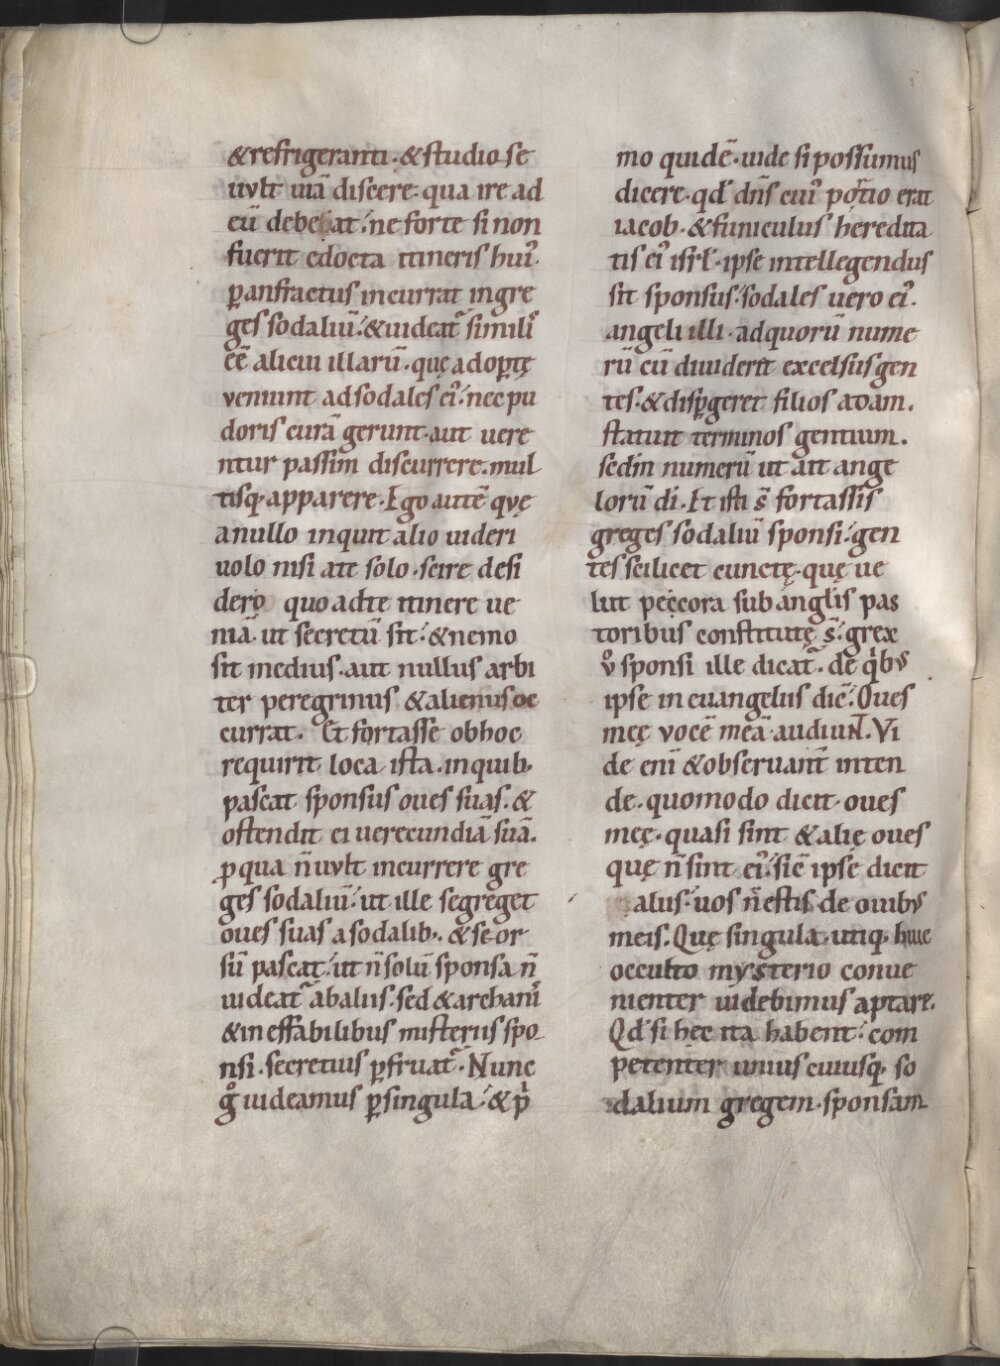 & refrigeranti · & studio se
uult uiā discere · qua ire ad
eū debebat ·́ ne forte si non
fuerit edocta itineris hui᷒ ·
p̱ anfractus incurrat in gre
ges sodaliū ·́ & uideat᷑ simil᷒
eē alicui illarū · quę adop̱tę
veniunt ad sodales ei᷒ ·́ nec pu
doris curā gerunt · aut uere
ntur passim discurrere · mul
tisq· apparere · Ego autē quę
a nullo inquit alio uideri
uolo nisi a te solo · scire desi
dero quo ad te itinere ue
niā · ut secretū sit ·́ & nemo
sit medius · aut nullus arbi
ter peregrinus & alienus oc
currat · Et fortasse ob hoc
requirit loca ista · in quib·
pascat sponsus oues suas · &
ostendit ei uerecundiā suā ·
p̱ qua n̄ uult incurrere gre
ges sodaliū ·́ ut ille segreget
oues suas a sodalib· · & seor
sū pascat ·́ ut n̄ solū sponsa n̄
uideat᷑ ab aliis · sed & archani᷒
& ineffabilibus misteriis spo-
nsi · secretius p̱fruat᷑ · Nunc
gͦ uideamus p̱ singula ·́ & pⁱ
mo quidē · uide si possumus
dicere · qđ dn̄s cui᷒ portio erat
iacob · & funiculus heredita
tis ei᷒ isrł · ipse intellegendus
sit sponsus ·́ sodales uero ei᷒ ·
angeli illi · ad quorū nume
rū cū diuiderēt excelsus gen
tes · & disp̱geret filios adam ·
statuit terminos gentium ·
sedm̄ numerū ut ait ange
lorū di · Et isti s̄ fortassis
greges sodaliū sponsi ·́ gen
tes scilicet cunctę · quę ue
lut peccora sub anglis pas
toribus constitutę s̄ ·́ grex
uͦ sponsi ille dicat᷑ · de qⁱb᷒
ipse in euangeliis dic̄ ·́ Oues
męę vocē meā audiuNT · Vi
de eni & obseruant̄ inten
de · quomodo dicit · oues
męę · quasi sint & alię oues
quę n̄ sint ei᷒ ·́ sic̄ ipse dicit
alus ·́ uos n̄ estis de ouib᷒
meis · Quę singula · utiq· huic
occulto mysterio conue
nienter uidebimus aptare ·
Qđ si hęc ita habent ·́ com
petenter unius cuiusq· so
dalium gregem · sponsam